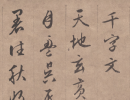 千字文
天地玄黃
月盈昃辰
暑往秋收